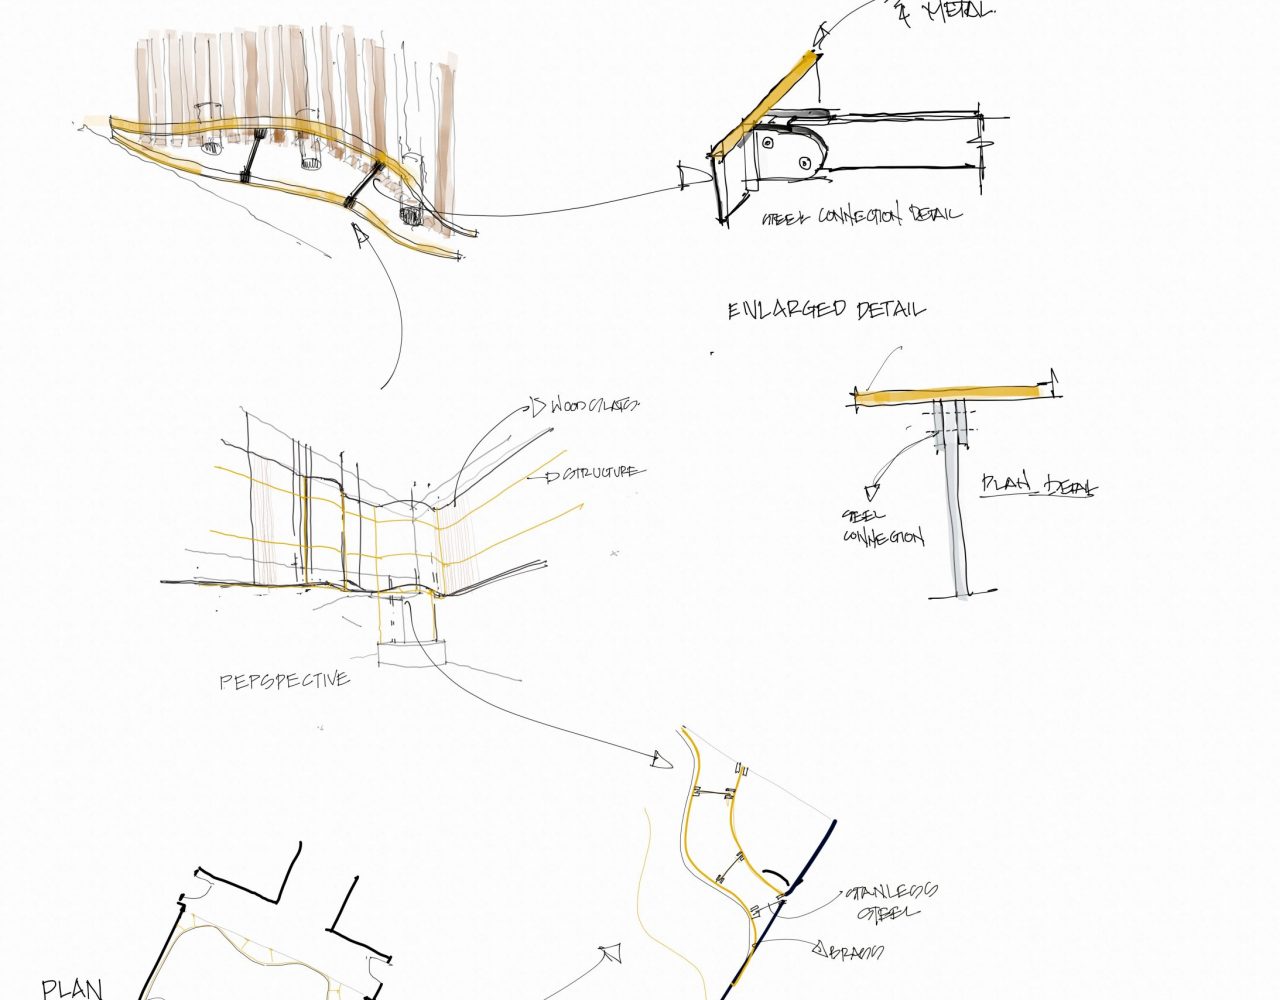 & METAL.
STEEL CONNECTION DETAIL
ENLARGED DETAIL
WOOD SLATS.
STRUCTURE
PLAN DETAIL
STEEL
CONNECTION
PERSPECTIVE
STANLESS
STEEL
BRASS
PLAN